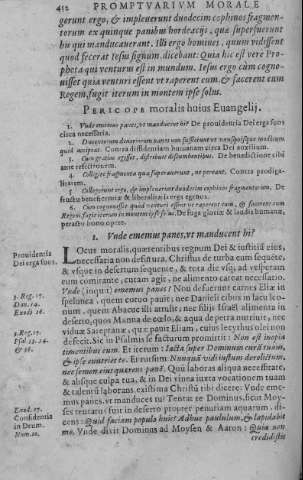 412 PROMPTVARIVM MORALE
gerunt ergo, & impleuerunt duodecim cophinos fragmen-
torum ex quinque panibus hordeaceis, qua superfuerunt
his qui manducauerant. Illi ergo homines, quum vidissent
quod fecerat Iesus signum, dicebant: Quia hic est vere Pro-
pheta qui venturus est in mundum. Iesus ergo cùm cogno-
uisset quia venturi essent vt raperent eum, & facerent eum
Regem, fugit iterum in montem ipse solus.
PERICOPE moralis huius Euangelij.
1. Vnde ememus panes, vt manducent hi? De prouidentia Dei erga suos
circa necessaria.
2. Ducentorum denariorum panes non sufficiunt eis vt vnusquisque modicum
quid accipiat. Contra diffidentiam humanam circa Dei
3. Cum gratias egisset, distribuit discumbentibus. De benedictione cibi
ante refectionem.
4. Colligite fragmenta qua superauerunt, ne pereant. Contra prodiga-
litatem.
5. Collegerunt ergo, & impleuerunt duodecim cophinos fragmentorum. De
fructu beneficentiæ & liberalitatis erga egenos.
6. Cum cognouisset quia venturi essent vt raperent eum, & facerent eum
Regem fugit iterum in montem ipse solus. De fuga gloriæ & laudis humanæ,
peracto bono opere.
1. Vnde ememus panes, vt manducent hi?
Prouidentia
Dei erga suos.
LOcus moralis, quærentibus regnum Dei & iustitiā eius,
necessaria non defutura. Christus de turba eum sequēte,
& vsque in desertum sequente, & tota die vsq; ad vesperam
cum comitante, curam agit, ne alimento careat necessario.
Vnde (inquit) ememus panes? Non defuerunt carnes Eliæ in
3. Reg. 17.
spelunca, quem coruus pauit; nec Danieli cibus in lacu leo-
Dan. 14.
num, quem Abacuc illi attulit; nec filijs Israël alimenta in
Exod. 16.
deserto, quos Manna de cælo, & aqua de petra nutriuit; nec
viduæ Sareptanæ, quæ pauit Eliam, cuius lecythus olei non
3. Reg. 17.
defecit. Sic in Psalmis se facturum promittit: Non est inopia
Psal. 33. 54.
timentibus eum. Et iterum: Iacta super Dominum curā tuam,
& 36.
& ipse enutriet te. Et rursum: Nunquā vidi iustum derelictum,
nec semen eius quærens panē. Qui laboras aliqua necessitate,
& absque culpa tua, & in Dei vinea iuxta vocationem tuam
& talentū laborans, existima Christū tibi dicere: Vnde eme-
mus panes, vt manducet tu? Tentat te Dominus, sicut Moy-
Exod. 17.
sen tentauit sitit in deserto propter penuriam aquarum, di-
Confidentia
cens: Quid faciam populo huic? Adhuc paululum, & lapidabit
in Deum.
me. Vnde dixit Dominus ad Moysen & Aaron: Quia non
Num. 20.
credidistis